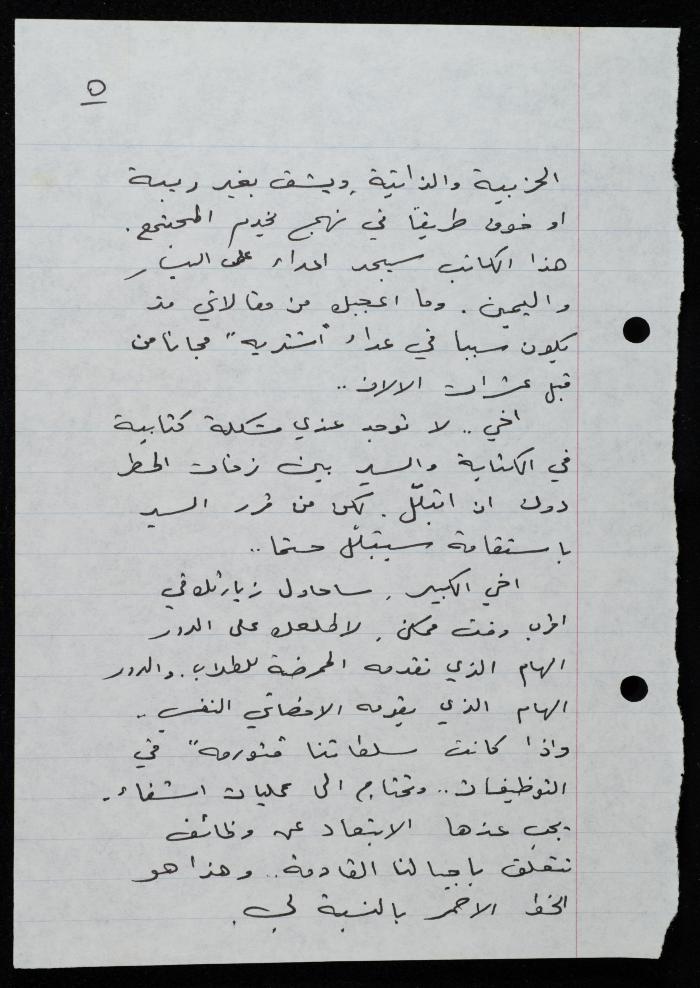 ٥
الحزبية والذاتية، ويشق بغير ريبة
او خوف طريقاً في نهج يخدم المجتمع.
هذا الكاتب سيجد اعداء على اليسار
واليمين. وما اعجبك من مقالاتي قد
يكون سببا في عداء "أشتريه" مجانا من
قبل عشرات الالاف..
اخي.. لا توجد عندي مشكلة كتابية
في الكتابة والسير بين زخات المطر
دون ان اتبلّل. لكن من قرر السير
باستقامة سيتبلّل حتما..
اخي الكبير، ساحاول زيارتك في
اقرب وقت ممكن، لاطلعك على الدور
الهام الذي تقدمه الممرضة للطلاب. والدور
الهام الذي يقدمه الاخصائي النفسي..
واذا كانت سلطاتنا "متورمة" في
التوظيفات.. وتحتاج الى عمليات اشفاء.
يجب عندها الابتعاد عن وظائف
تتعلق باجيالنا القادمة.. وهذا هو
الخط الاحمر بالنسبة لي.